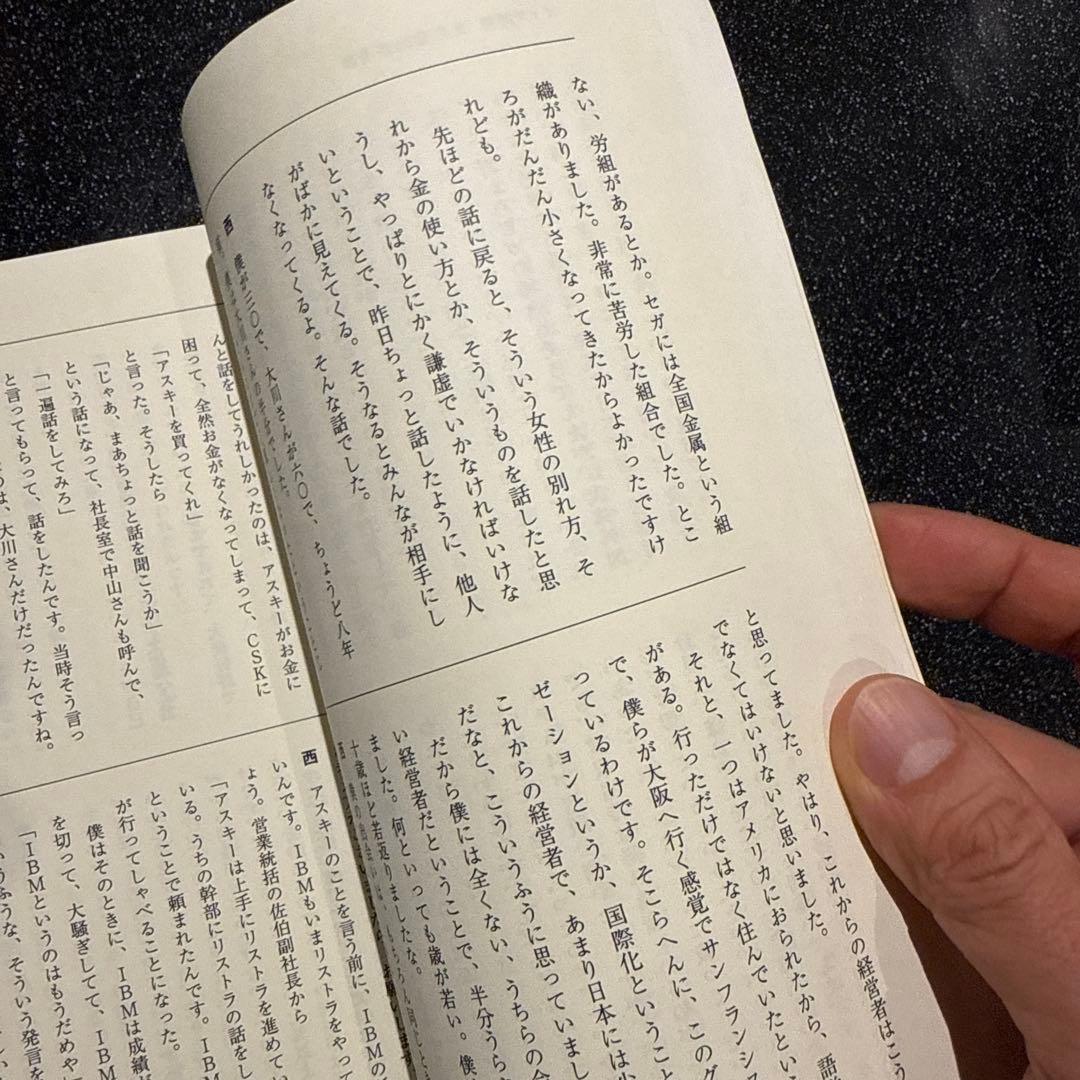 ない、労組があるとか。セガには全国金属という組
織がありました。非常に苦労した組合でした。とこ
ろがだんだん小さくなってきたからよかったですけ
れども。
先ほどの話に戻ると、そういう女性の別れ方、そ
れから金の使い方とか、そういうものを話したと思
うし、やっぱりとにかく謙虚でいかなければいけな
いということで、昨日ちょっと話したように、他人
がばかに見えてくる。そうなるとみんなが相手にし
なくなってくるよ。そんな話でした。
西 僕が三〇で、大川さんが六〇で、ちょうど八年
と思ってました。やはり、これからの経営者はこう
でなくてはいけないと思いました。
それと、一つはアメリカにおられたから、語
がある。行っただけではなく住んでいたという
で、僕らが大阪へ行く感覚でサンフランシス
っているわけです。そこらへんに、このグ
ゼーションというか、国際化ということ
これからの経営者で、あまり日本には少
だなと、こういうふうに思っていまし
だから僕には全くない、うちらの会
い経営者だということで、半分うら
ました。何といっても歳が若い。僕
十歳ほど若返りましたな。
んと話をしてうれしかったのは、アスキーがお金に
困って、全然お金がなくなってしまって、CSKに
「アスキーを買ってくれ」
と言った。そうしたら
「じゃあ、まあちょっと話を聞こうか」
という話になって、社長室で中山さんも呼んで、
「一遍話をしてみろ」
と言ってもらって、話をしたんです。当時そう言っ
は、大川さんだけだったんですね。
西 アスキーのことを言う前に、IBMの
いんです。IBMもいまリストラをやって
よう。営業統括の佐伯副社長から
「アスキーは上手にリストラを進めてい
いる。うちの幹部にリストラの話をし
ということで頼まれたんです。IB
が行ってしゃべることになった。
僕はそのときに、IBMは成績が
を切って、大騒ぎしてて、IBM
「IBMというのはもうだめや
いうふうな、そういう発言を